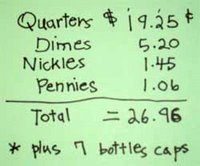 Quarters $ 19.25 ¢
Dimes 5.20
Nickles 1.45
Pennies 1.06
Total = 26.96
* plus 7 bottles caps